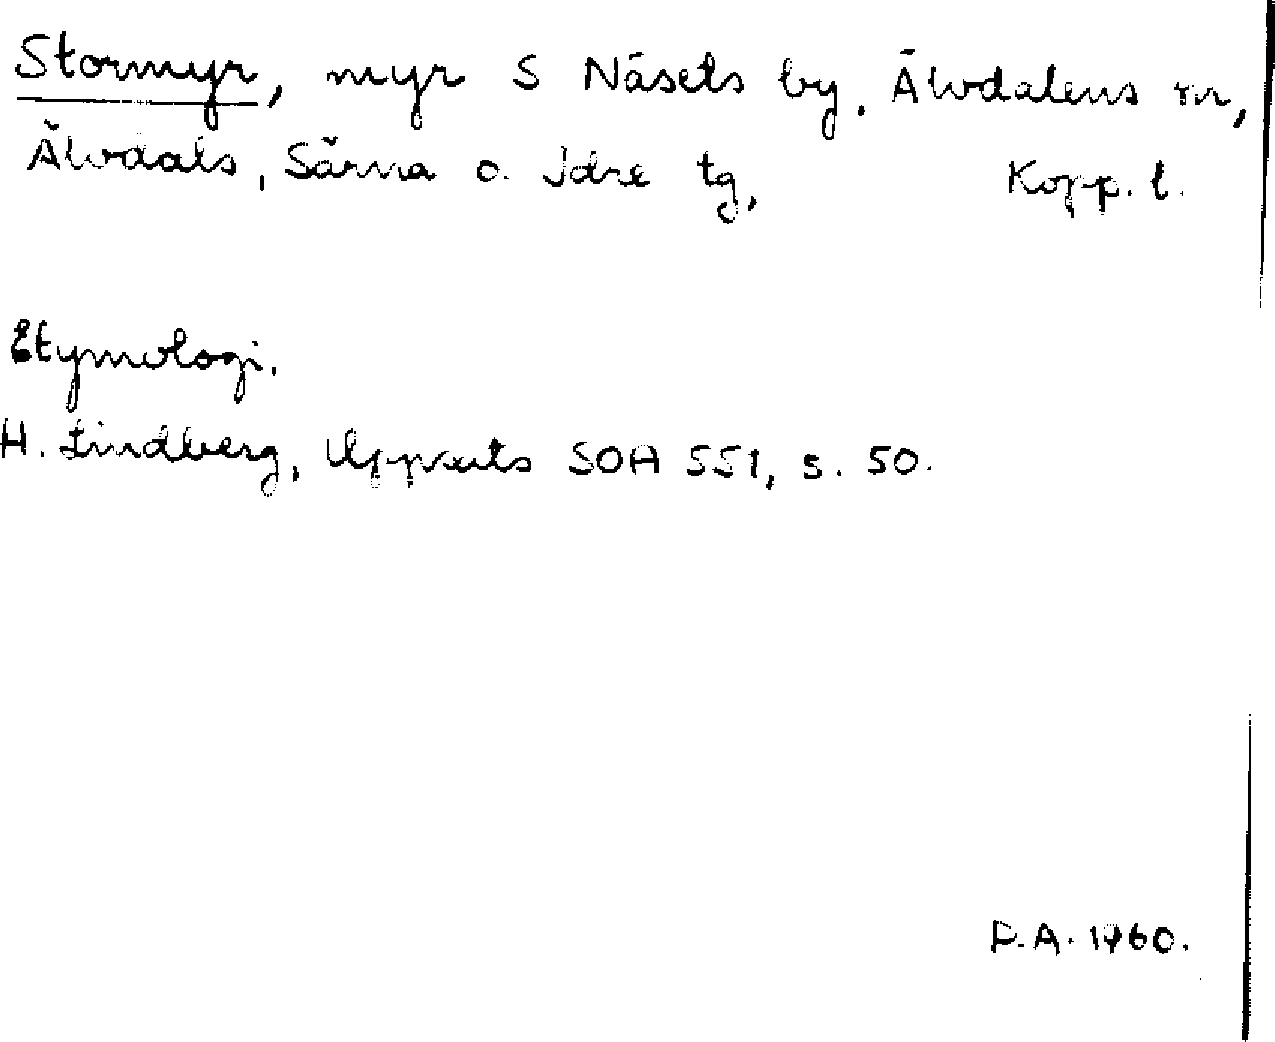 Stormyr, myr S Näsets by, Älvdalens sn,
Älvdals, Särna o. Idre tg, Kopp. l.
Etymologi.
H. Lindberg, Uppsats SOA 551, s. 50.
P.A. 1960.